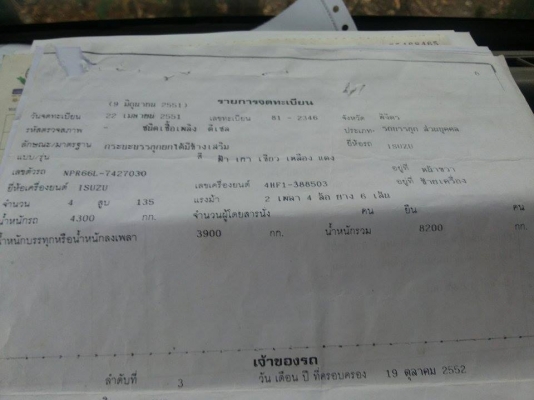 (9 มิถุนายน 2551) รายการจดทะเบียน
วันจดทะเบียน 22 เมษายน 2551 เลขทะเบียน 81 - 2346 จังหวัด พิจิตร
รหัสตรวจสภาพ - ชนิดเชื้อเพลิง ดีเซล ประเภท รถบรรทุก ส่วนบุคคล
ลักษณะ/มาตรฐาน กระบะบรรทุกยกได้มีข้างเสริม ยี่ห้อรถ ISUZU
แบบ/รุ่น สี ฟ้า เทา เขียว เหลือง แดง
เลขตัวรถ NPR66L-7427030 อยู่ที่ หน้าขวา
ยี่ห้อเครื่องยนต์ ISUZU เลขเครื่องยนต์ 4HF1-388503 อยู่ที่ ซ้ายเครื่อง
จำนวน 4 สูบ 135 แรงม้า 2 เพลา 4 ล้อ ยาง 6 เส้น
น้ำหนักรถ 4300 กก. จำนวนผู้โดยสารนั่ง คน ยืน คน
น้ำหนักบรรทุกหรือน้ำหนักลงเพลา 3900 กก. น้ำหนักรวม 8200 กก.
เจ้าของรถ
ลำดับที่ 3 วัน เดือน ปี ที่ครอบครอง 19 ตุลาคม 2552